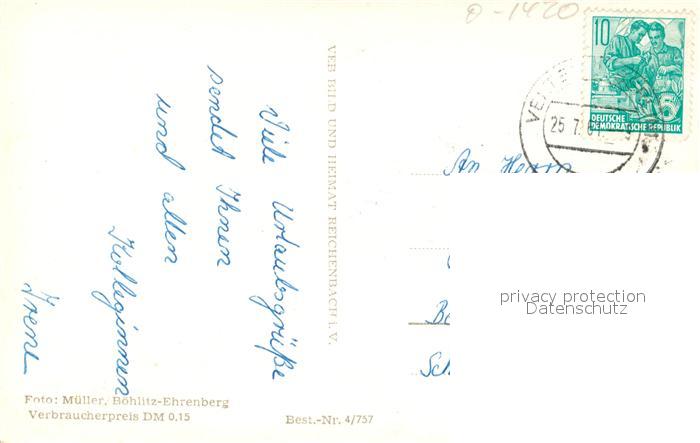 Viele Urlaubsgrüße
sendet Ihnen
und allen
Kolleginnen
Irene
Foto: Müller, Böhlitz-Ehrenberg
Verbraucherpreis DM 0,15
Best.-Nr. 4/757
VEB BILD UND HEIMAT REICHENBACH i. V.
0-1420
10
DEUTSCHE
DEMOKRATISCHE REPUBLIK
25 7.
An Herrn
privacy protection
Datenschutz